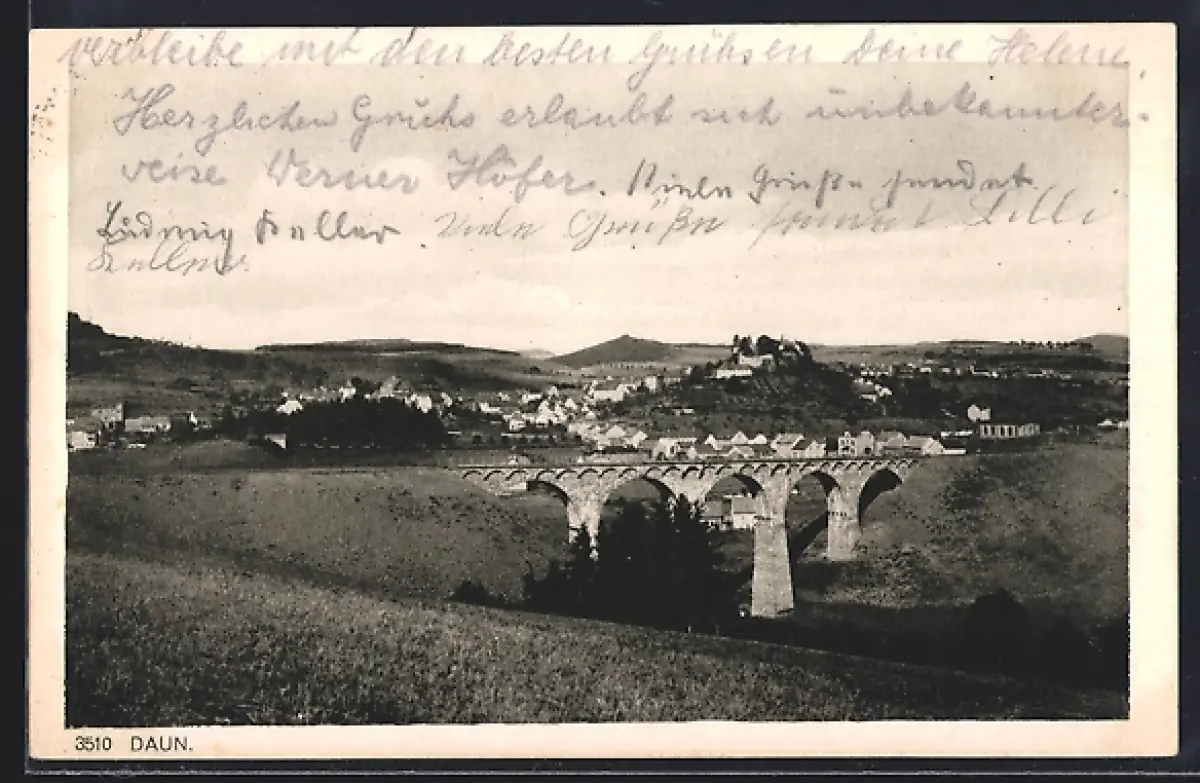 verbleibe mit den besten Grühsen Deine Helene.
Herzlichen Gruhs erlaubt sich unbekannter-
weise Werner Höfer. Viele Grüße sendet
Ludwig Keller. Viele Grüße sendet Lilli
Keller.
3510 DAUN.